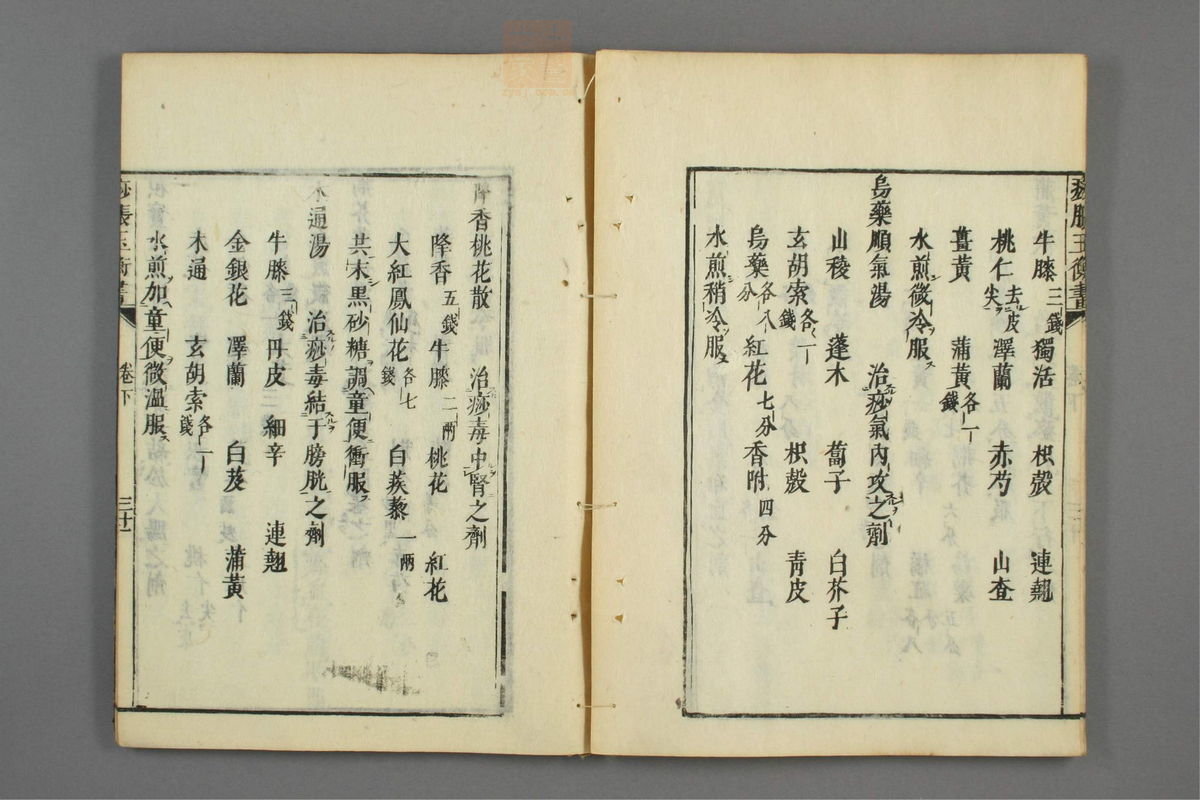 痧脹玉衡書
牛膝三錢 獨活 枳殼 連翹
桃仁去皮尖 澤蘭 赤芍 山查
薑黃 蒲黃各一錢
水煎微冷服
烏藥順氣湯 治痧氣內攻之劑
山稜 蓬朮 蔔子 白芥子
玄胡索各一錢 枳殼 青皮
烏藥各八分 紅花七分 香附四分
水煎稍冷服
降香桃花散 治痧毒中腎之劑
降香五錢 牛膝二兩 桃花 紅花
大紅鳳仙花各七錢 白蒺藜一兩
共末黑砂糖調童便衝服
木通湯 治痧毒結于膀胱之劑
牛膝三錢 丹皮 細辛 連翹
金銀花 澤蘭 白芨 蒲黃
木通 玄胡索各一錢
水煎加童便微溫服
痧脹玉衡書 卷下 三十一